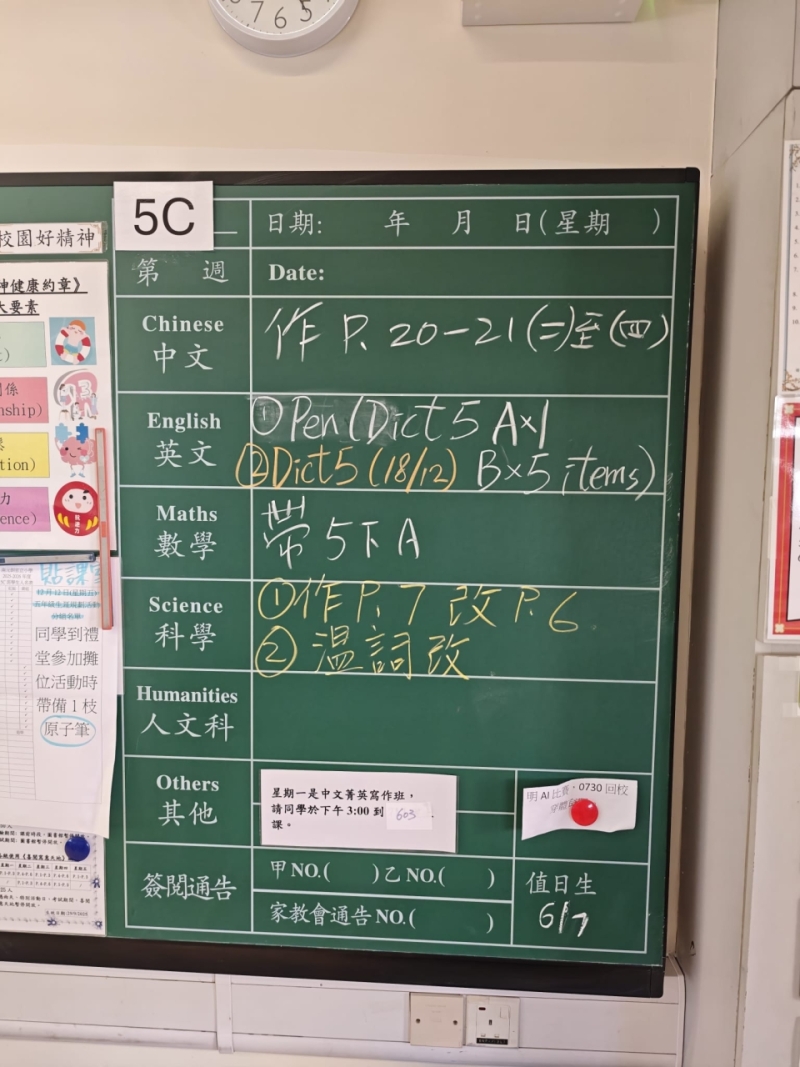 7 6 5
5C
日期: 年 月 日(星期 )
第 週
Date:
Chinese
中文
作 P. 20-21 (二)至(四)
English
英文
① Pen (Dict 5 A×1
② Dict 5 (18/12) B×5 items)
Maths
數學
帶 5下A
Science
科學
① 作 P. 7 改 P. 6
② 溫詞改
Humanities
人文科
Others
其他
星期一是中文菁英寫作班，
請同學於下午 3:00 到 603
課。
明 AI 比賽，0730 回校
簽閱通告
甲 NO.( ) 乙 NO.( )
家教會通告 NO.( )
值日生
6/7
校園好精神
神健康約章》
大要素
關係
nship)
tion)
力
ence)
貼課室
同學到禮
堂參加攤
位活動時
帶備 1 枝
原子筆